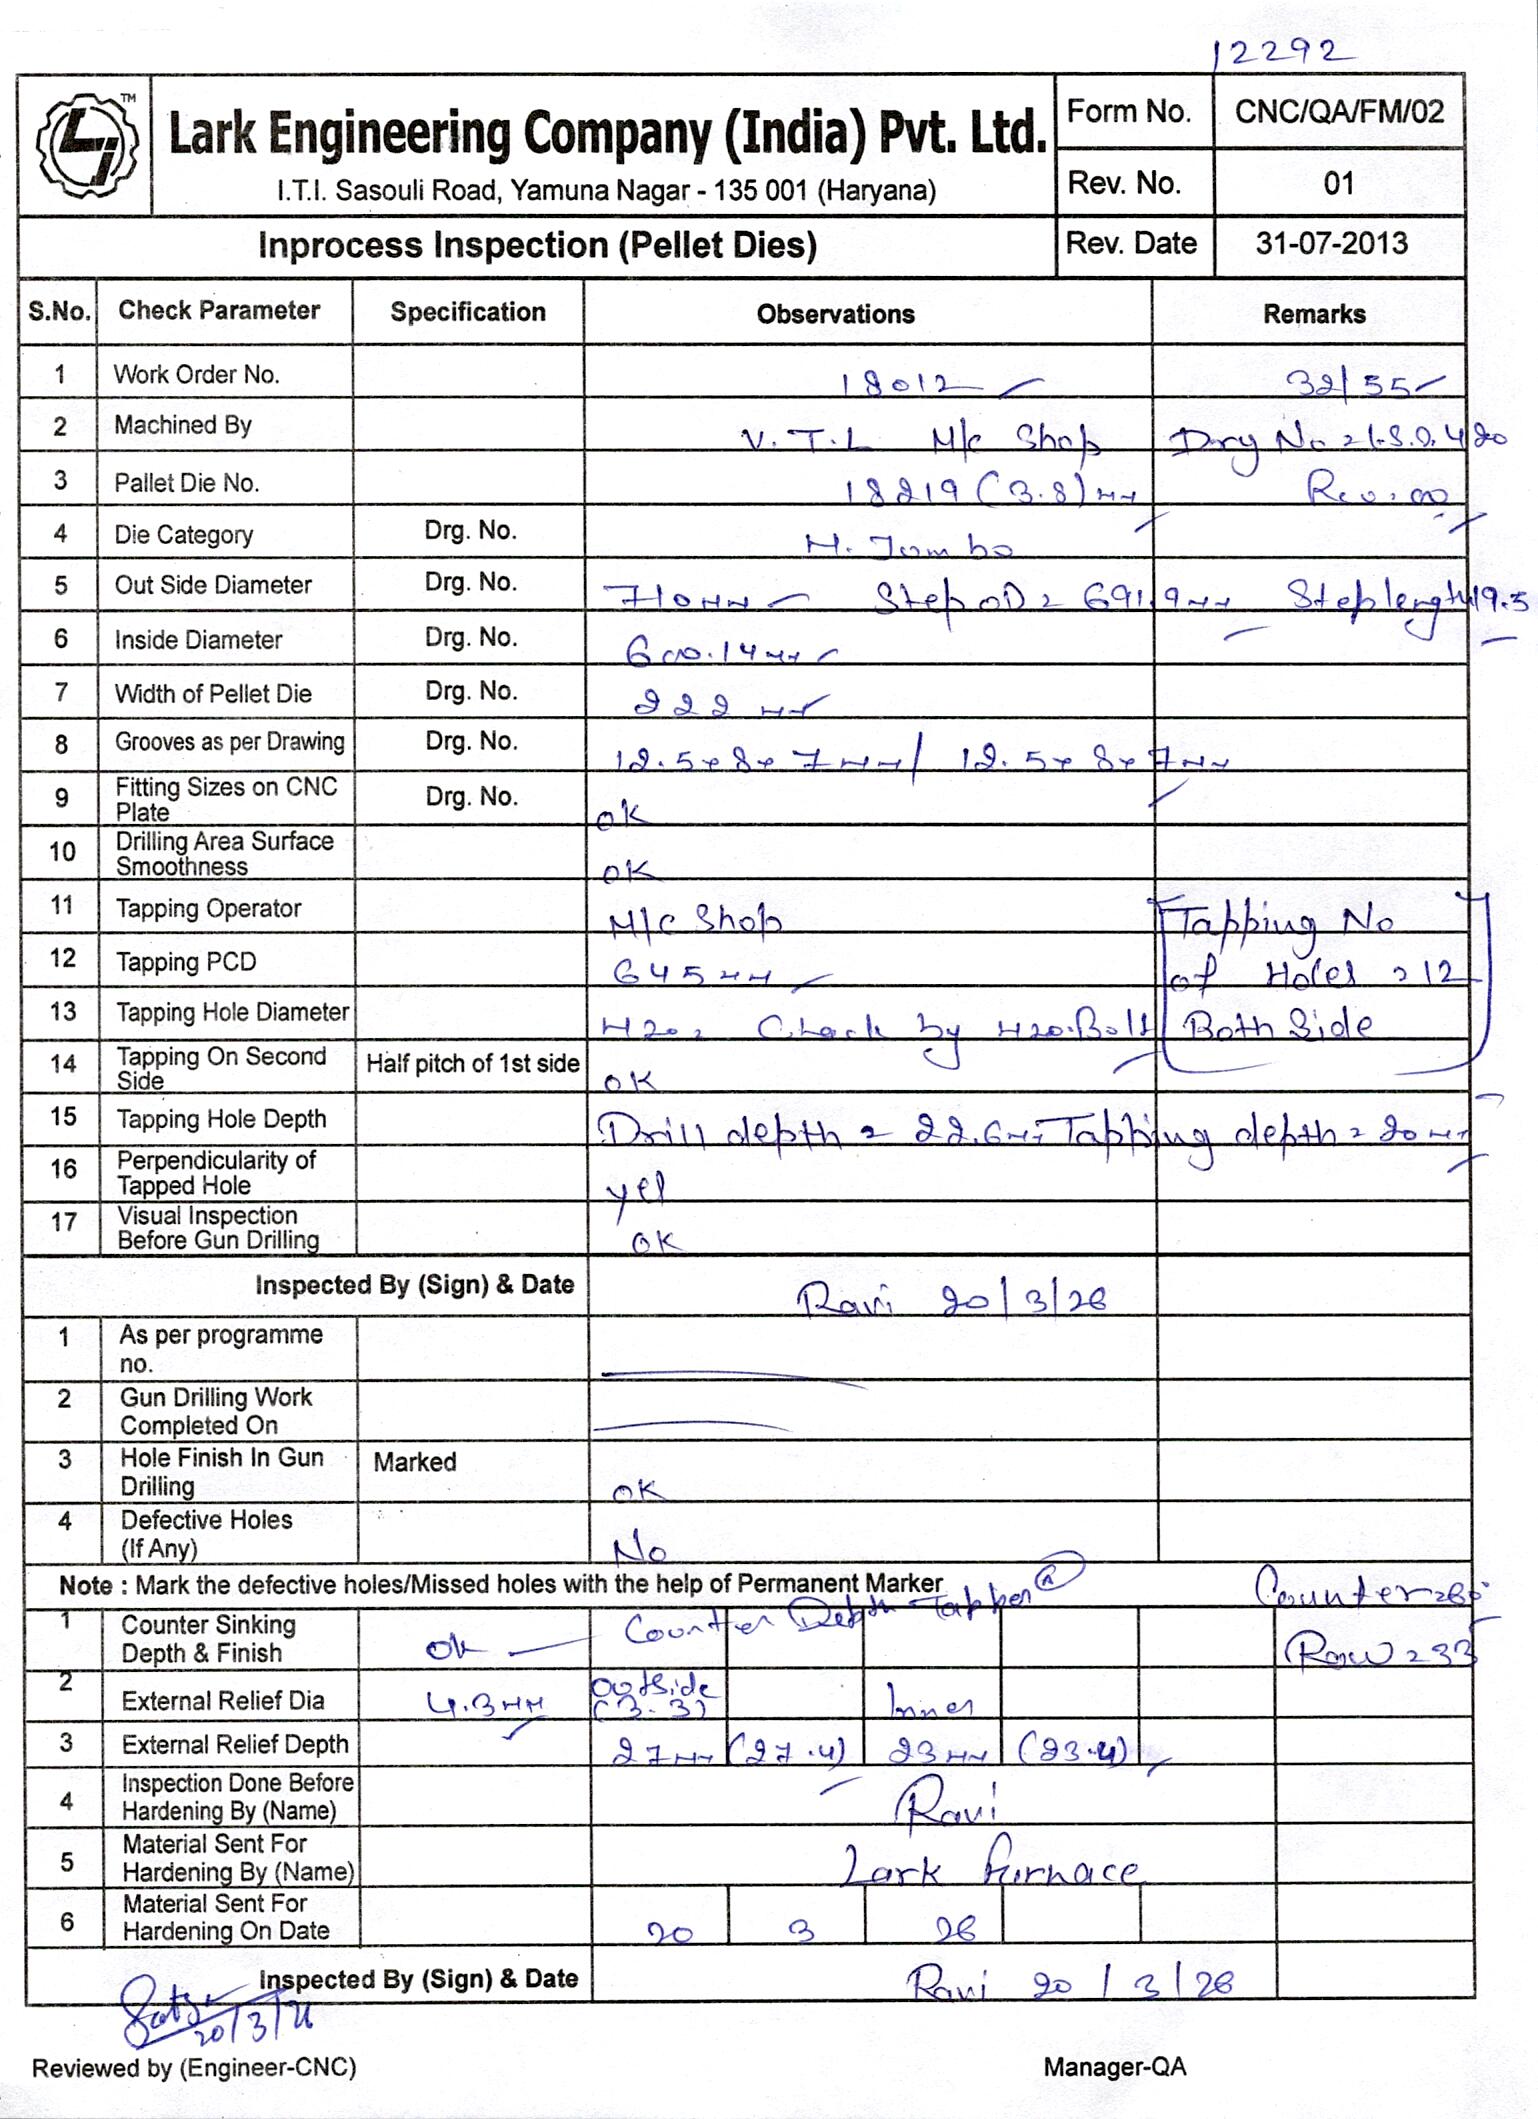 12292
Lark Engineering Company (India) Pvt. Ltd.
I.T.I. Sasouli Road, Yamuna Nagar - 135 001 (Haryana)
Form No. CNC/QA/FM/02
Rev. No. 01
Inprocess Inspection (Pellet Dies) Rev. Date 31-07-2013
S.No. Check Parameter Specification Observations Remarks
1 Work Order No. 18012 32/55
2 Machined By V.T.L M/c Shop
3 Pallet Die No. 18219 (3.8)
4 Die Category Drg. No. H. Jumbo
5 Out Side Diameter Drg. No. 710 Step OD = 691.9 Step length 19.5
6 Inside Diameter Drg. No. 600.14
7 Width of Pellet Die Drg. No. 222
8 Grooves as per Drawing Drg. No. 12.5 x 8 x 7 / 12.5 x 8 x 7
9 Fitting Sizes on CNC Plate Drg. No. OK
10 Drilling Area Surface Smoothness OK
11 Tapping Operator M/c Shop Tapping No
12 Tapping PCD 645 of Holes = 12
13 Tapping Hole Diameter M20 = Check by M20 Bolt Both Side
14 Tapping On Second Side Half pitch of 1st side OK
15 Tapping Hole Depth Drill depth = 22.6 Tapping depth = 20
16 Perpendicularity of Tapped Hole yes
17 Visual Inspection Before Gun Drilling OK
Inspected By (Sign) & Date Ravi 20/3/26
1 As per programme no.
2 Gun Drilling Work Completed On
3 Hole Finish In Gun Drilling Marked OK
4 Defective Holes (If Any) No
Note : Mark the defective holes/Missed holes with the help of Permanent Marker
1 Counter Sinking Depth & Finish OK Counter Depth Tapper Counter = 60° Row = 33
2 External Relief Dia 4.3 mm Outside (3.3) Inner
3 External Relief Depth 27 (27.4) 23 (23.4)
4 Inspection Done Before Hardening By (Name) Ravi
5 Material Sent For Hardening By (Name) Lark Furnace
6 Material Sent For Hardening On Date 20 3 26
Inspected By (Sign) & Date Ravi 20/3/26
20/3/26
Reviewed by (Engineer-CNC) Manager-QA